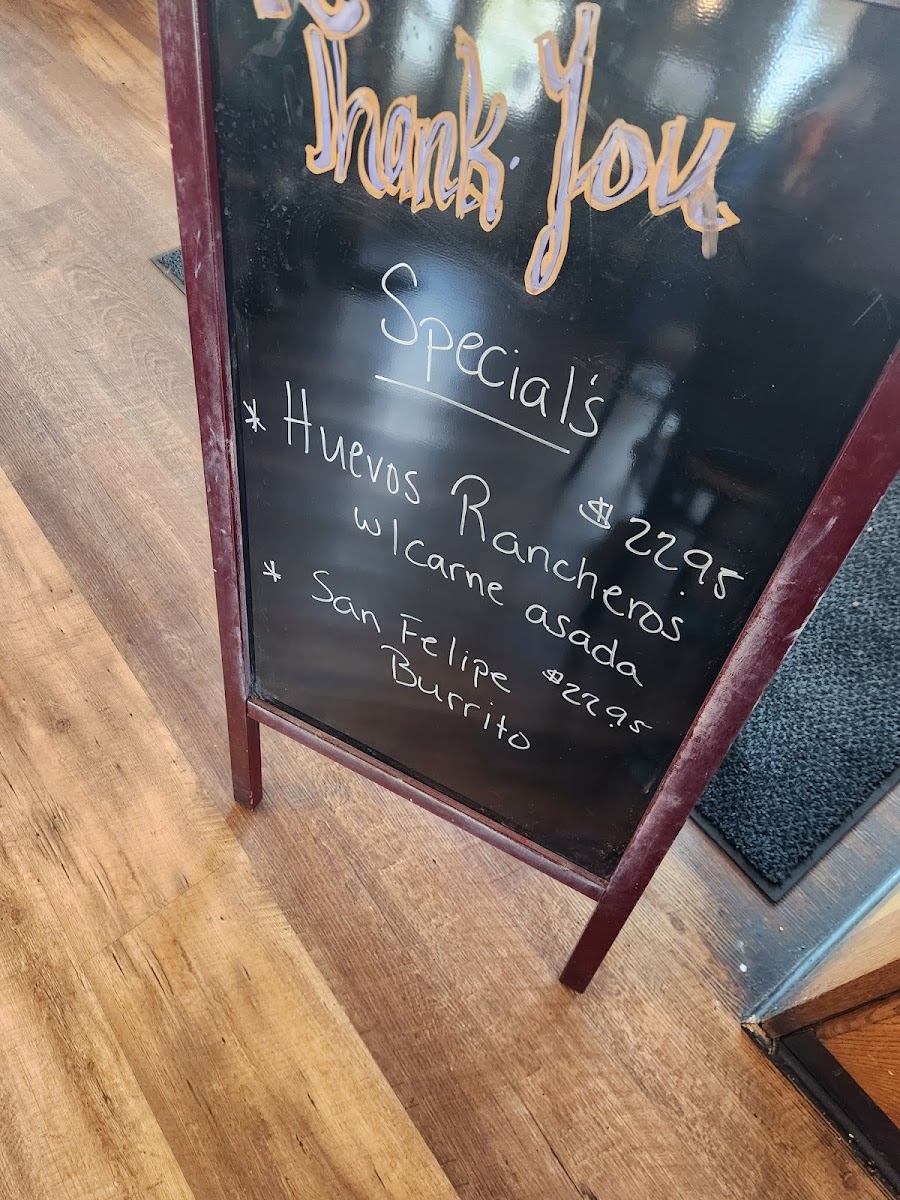 Thank You
Special's
* Huevos Rancheros $22.95
w/carne asada
* San Felipe $22.95
Burrito